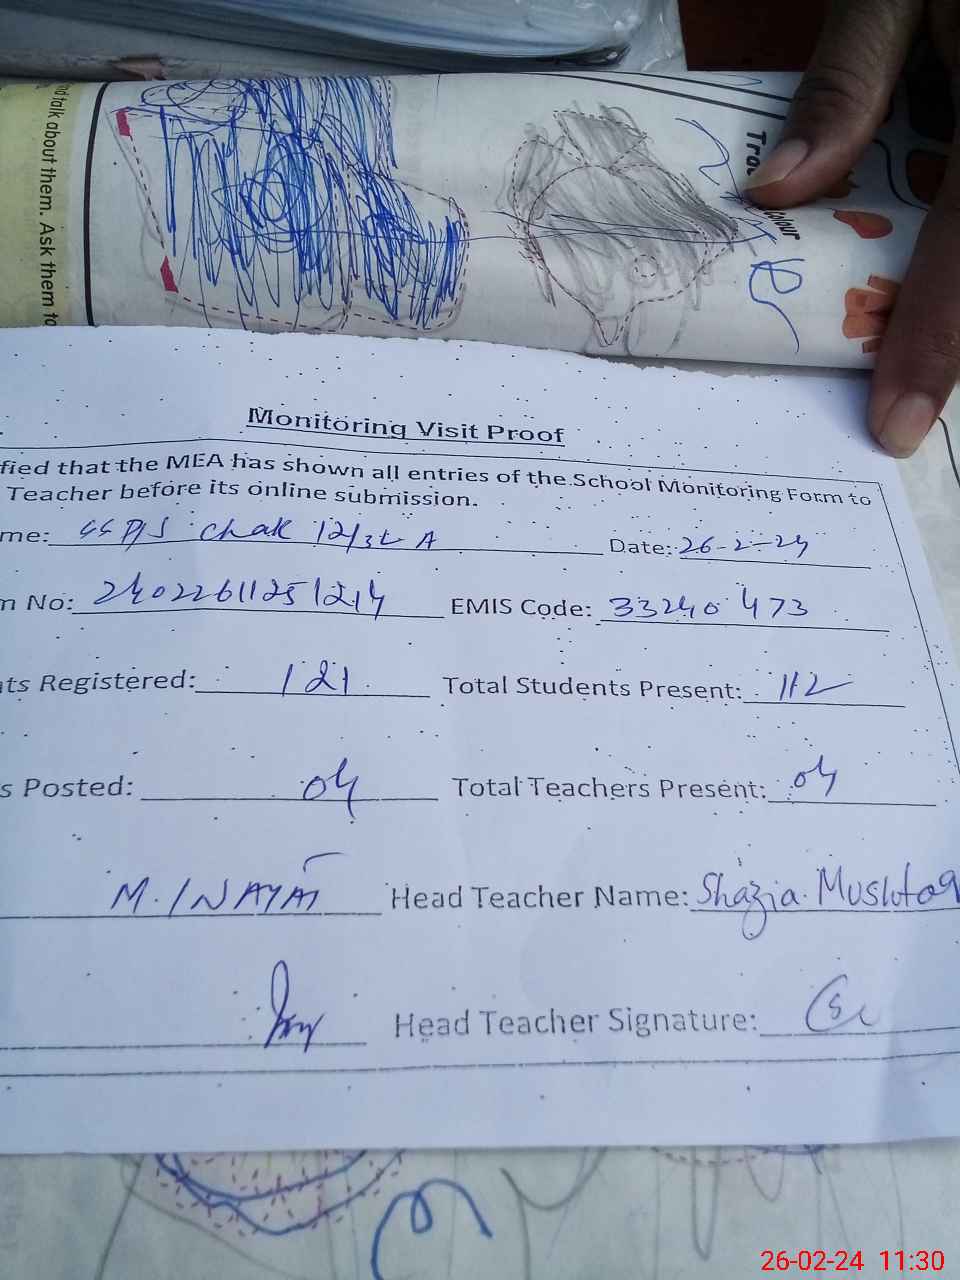 nd talk about them. Ask them to
Tra
colour
Monitoring Visit Proof
fied that the MEA has shown all entries of the School Monitoring Form to
Teacher before its online submission.
me: GGP/S Chak 12/3L A Date: 26-2-24
n No: 2402261125 1214 EMIS Code: 33240473
nts Registered: 121 Total Students Present: 112
s Posted: 04 Total Teachers Present: 04
M. INAYAT Head Teacher Name: Shazia Mushtaq
Head Teacher Signature:
26-02-24 11:30